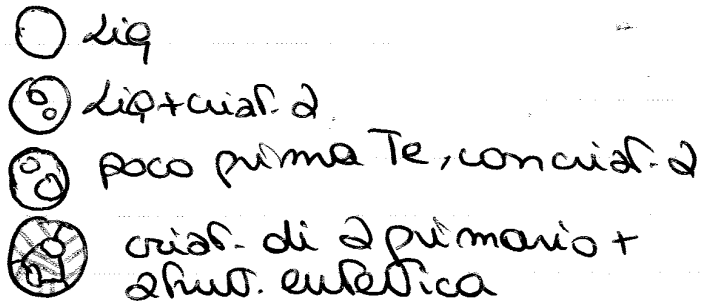 Liq
Liq+crist. α
poco prima Te, con crist. α
crist. di α primario +
strut. eutettica